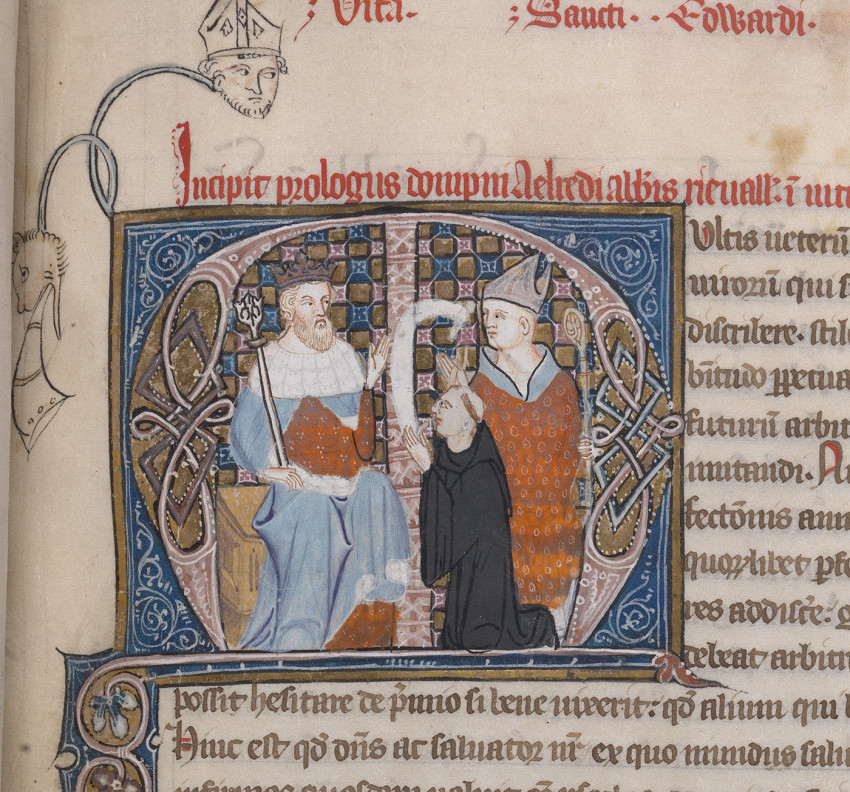 Vita. Sancti. Edwardi.
Incipit prologus dompni Aelredi abb̄is rieuall. ī uit
Multis ueterū
uirorū qui s
discribere. stil
b̄titudo ꝑpetua
futurū arbit
imitandi. A
fectōnis anim
quorūlibet ꝑfe
res addisc̄e. q
debeat arbitr
possit hesitare de p̄mio si bene uixerit: qd̄ alium qui b
Hinc est qd̄ dn̄s ac saluator nr̄ ex quo mundus salu
infirmos quosdam uoluit